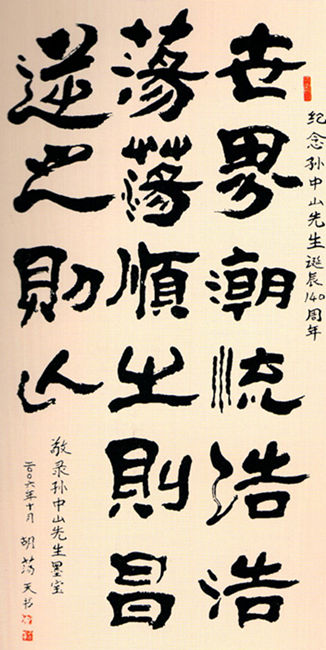 纪念孙中山先生诞辰140周年
世界潮流浩浩
蕩蕩順之則昌
逆之則亾
敬录孙中山先生墨宝
二〇〇六年十月 胡 天书